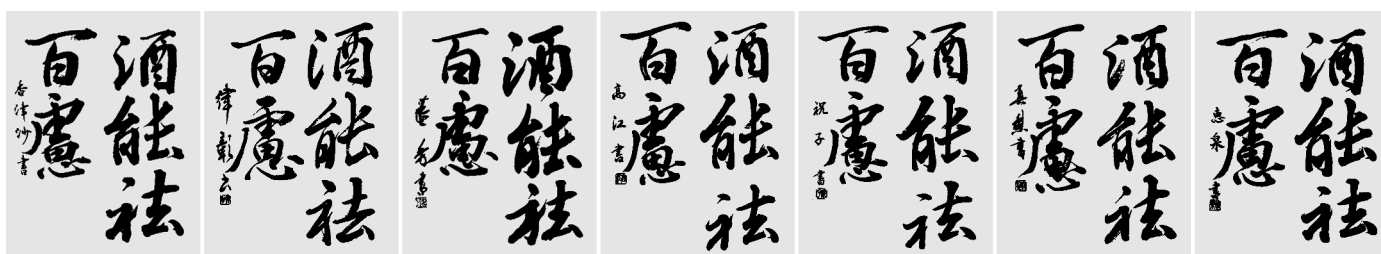 酒能祛
百慮
香津沙書
酒能祛
百慮
酒能祛
百慮
酒能祛
百慮
高江書
酒能祛
百慮
祝子書
酒能祛
百慮
酒能祛
百慮
恵泉書